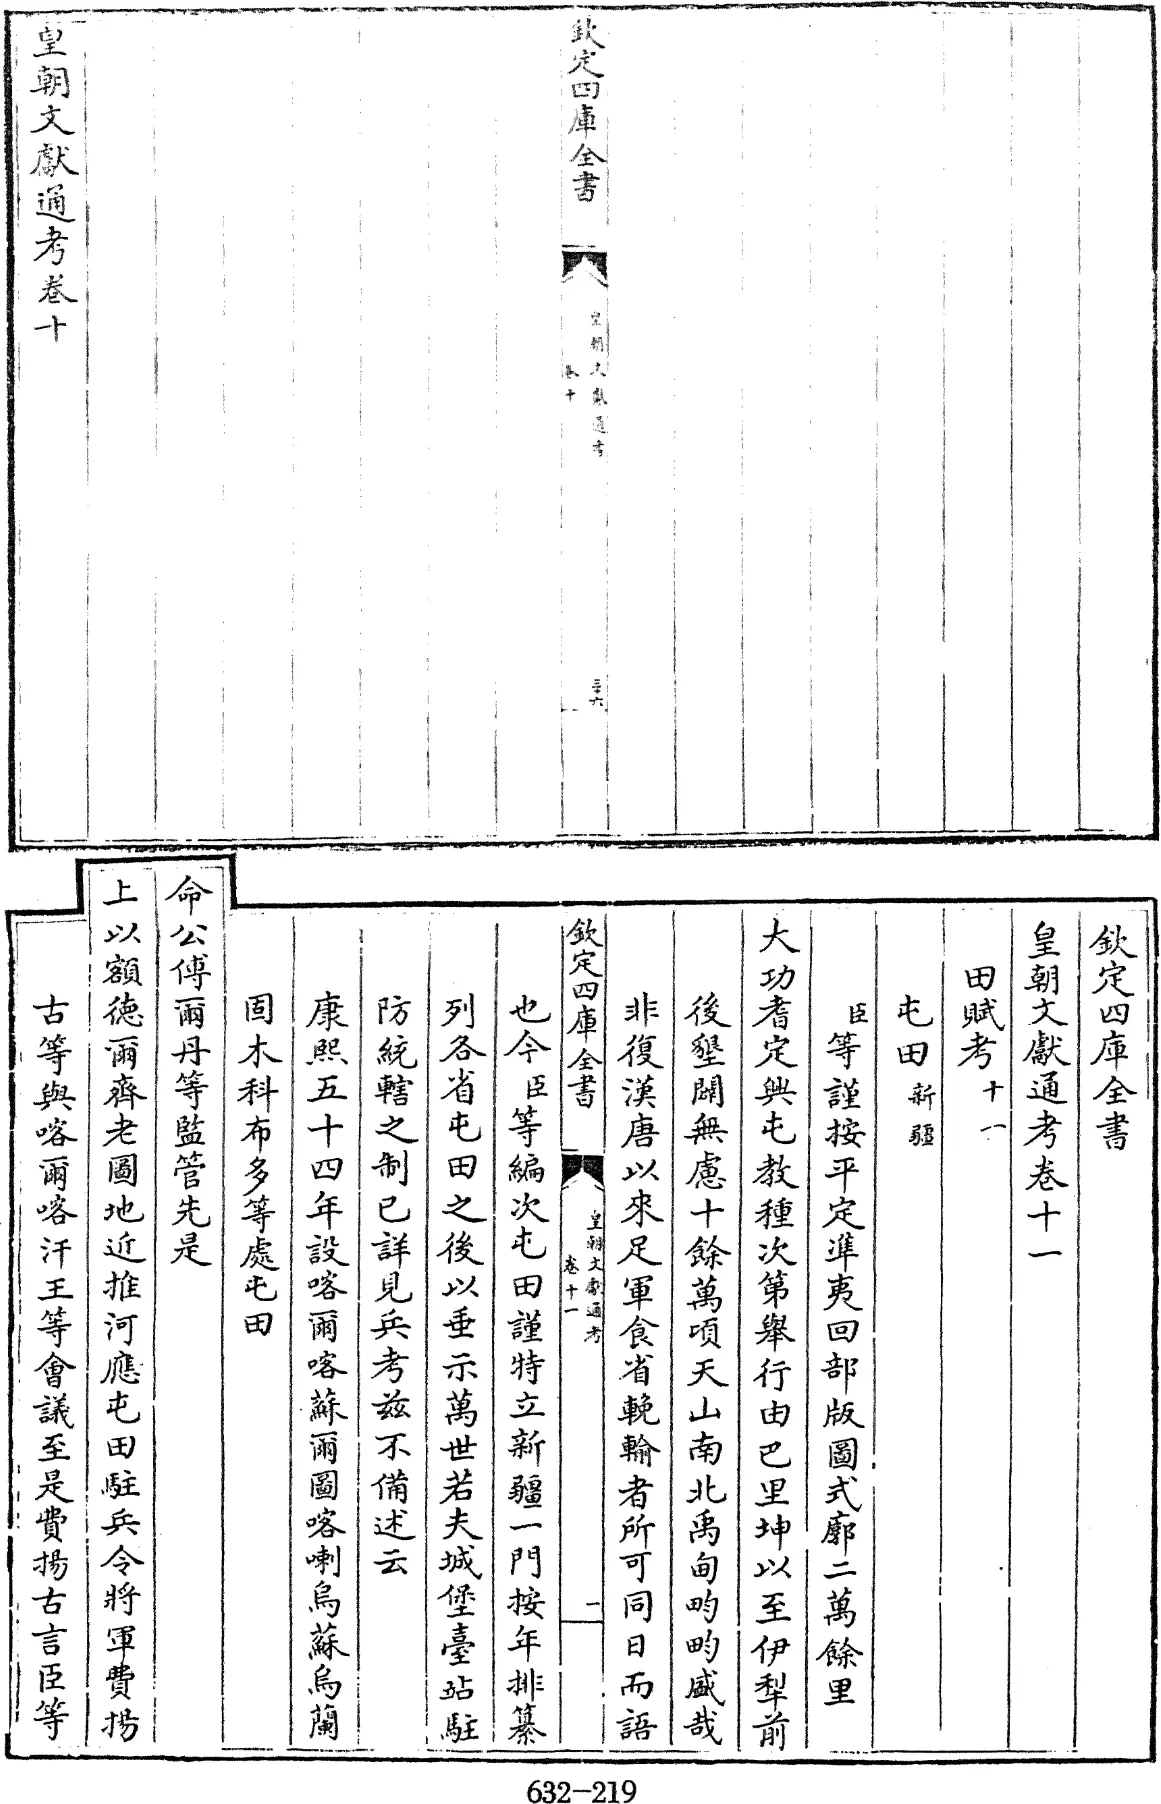 欽定四庫全書
皇朝文獻通考
卷十
三十六
皇朝文獻通考卷十
欽定四庫全書
皇朝文獻通考卷十一
田賦考十一
屯田新疆
臣等謹按平定準夷回部版圖式廓二萬餘里
大功耆定興屯教種次第舉行由巴里坤以至伊犁前
後墾闢無慮十餘萬頃天山南北禹甸畇畇盛哉
非復漢唐以來足軍食省輓輸者所可同日而語
欽定四庫全書
皇朝文獻通考
卷十一
一
也今臣等編次屯田謹特立新疆一門按年排纂
列各省屯田之後以垂示萬世若夫城堡臺站駐
防統轄之制已詳見兵考兹不備述云
康熙五十四年設喀爾喀蘇爾圖喀喇烏蘇烏蘭
固木科布多等處屯田
命公傅爾丹等監管先是
上以額德爾齊老圖地近推河應屯田駐兵令將軍費揚
古等與喀爾喀汗王等會議至是費揚古言臣等
632-219